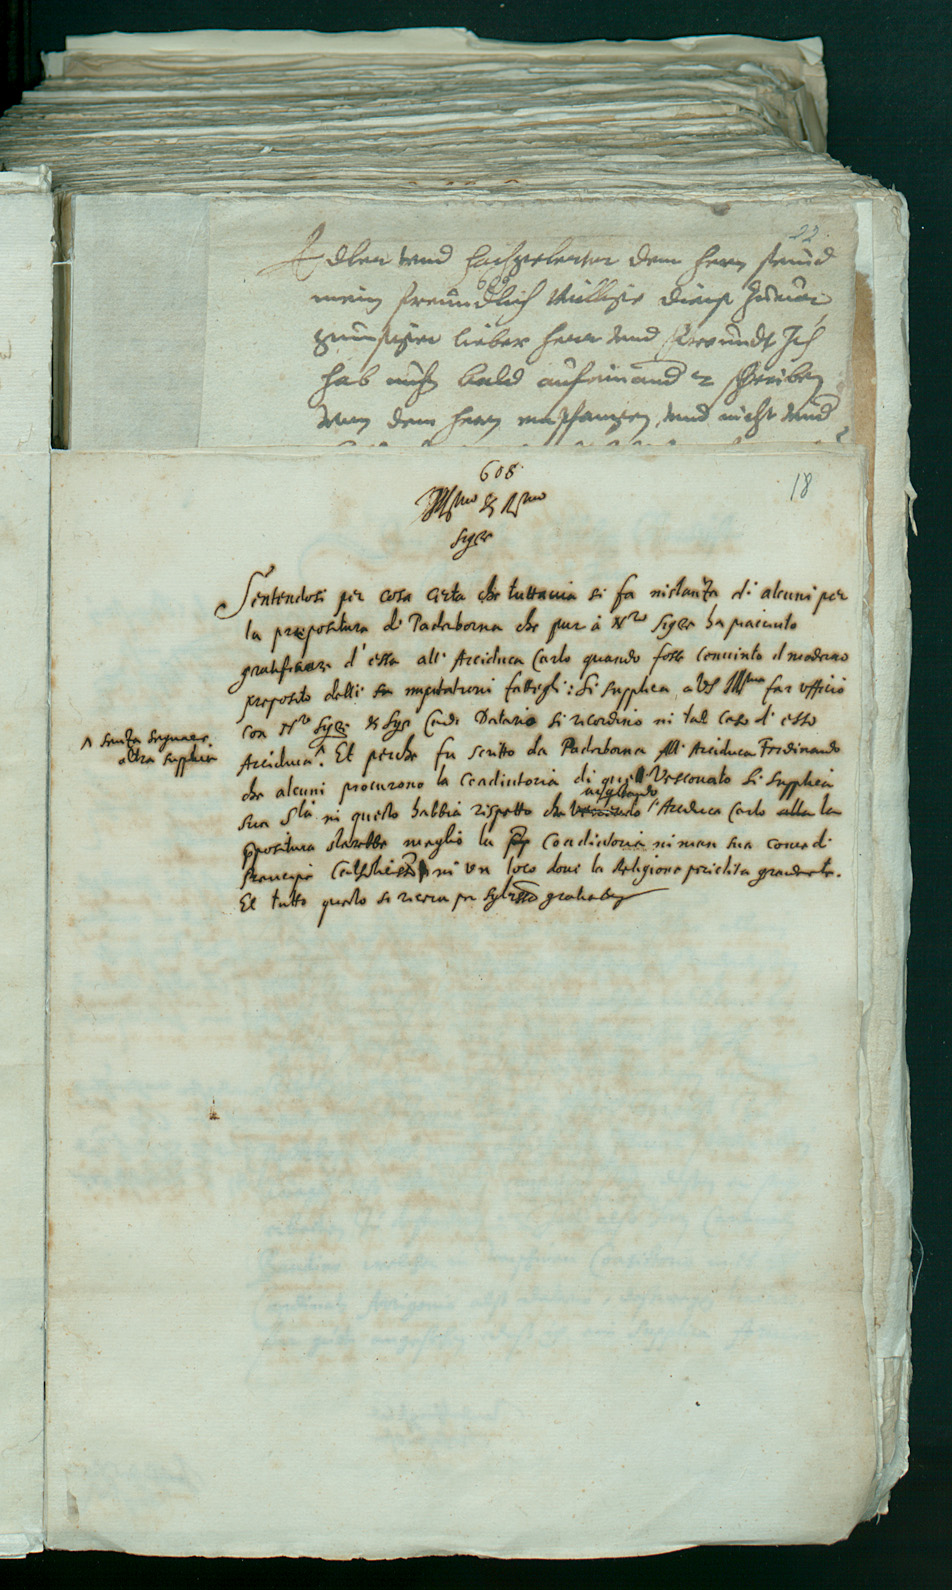 22
Edler und hochgelerter dem hern seind
mein freundlich willige dienst zuvor
gunstiger lieber herr und freundt Ich
hab nuhn bald aufeinander schreiben
von dem hern entfangen, und nicht und
608
18
Ill.mo & R.mo
Sig.re
Sentendosi per cosa certa che tuttavia si fa instanza di alcuni per
la prepositura di Paderborna che pur à N.ro Sig.re ha piaciuto
gratificare d'essa all' Arciduca Carlo quando fosse convinto il moderno
preposito delli imputationi fattegli: Si supplica a VS Ill.ma far ufficio
con N.ro Sig.re & Sig.r Card. Datario si ricordino in tal caso di esso
Arciduca ^. Et perche fu scritto da Paderborna all' Arciduca Ferdinando
^ senza segnare
altra supplica
che alcuni procurono la Coadiutoria di quell Vescovato si supplica
sua S.tà in questo habbia rispetto che l'Arciduca Carlo alla la
prepositura starebbe meglio la Coadiutoria in man sua come di
Prencipe Catholico in un loco dove la Religione periclita grandemte.
Et tutto questo si riceva per gratia